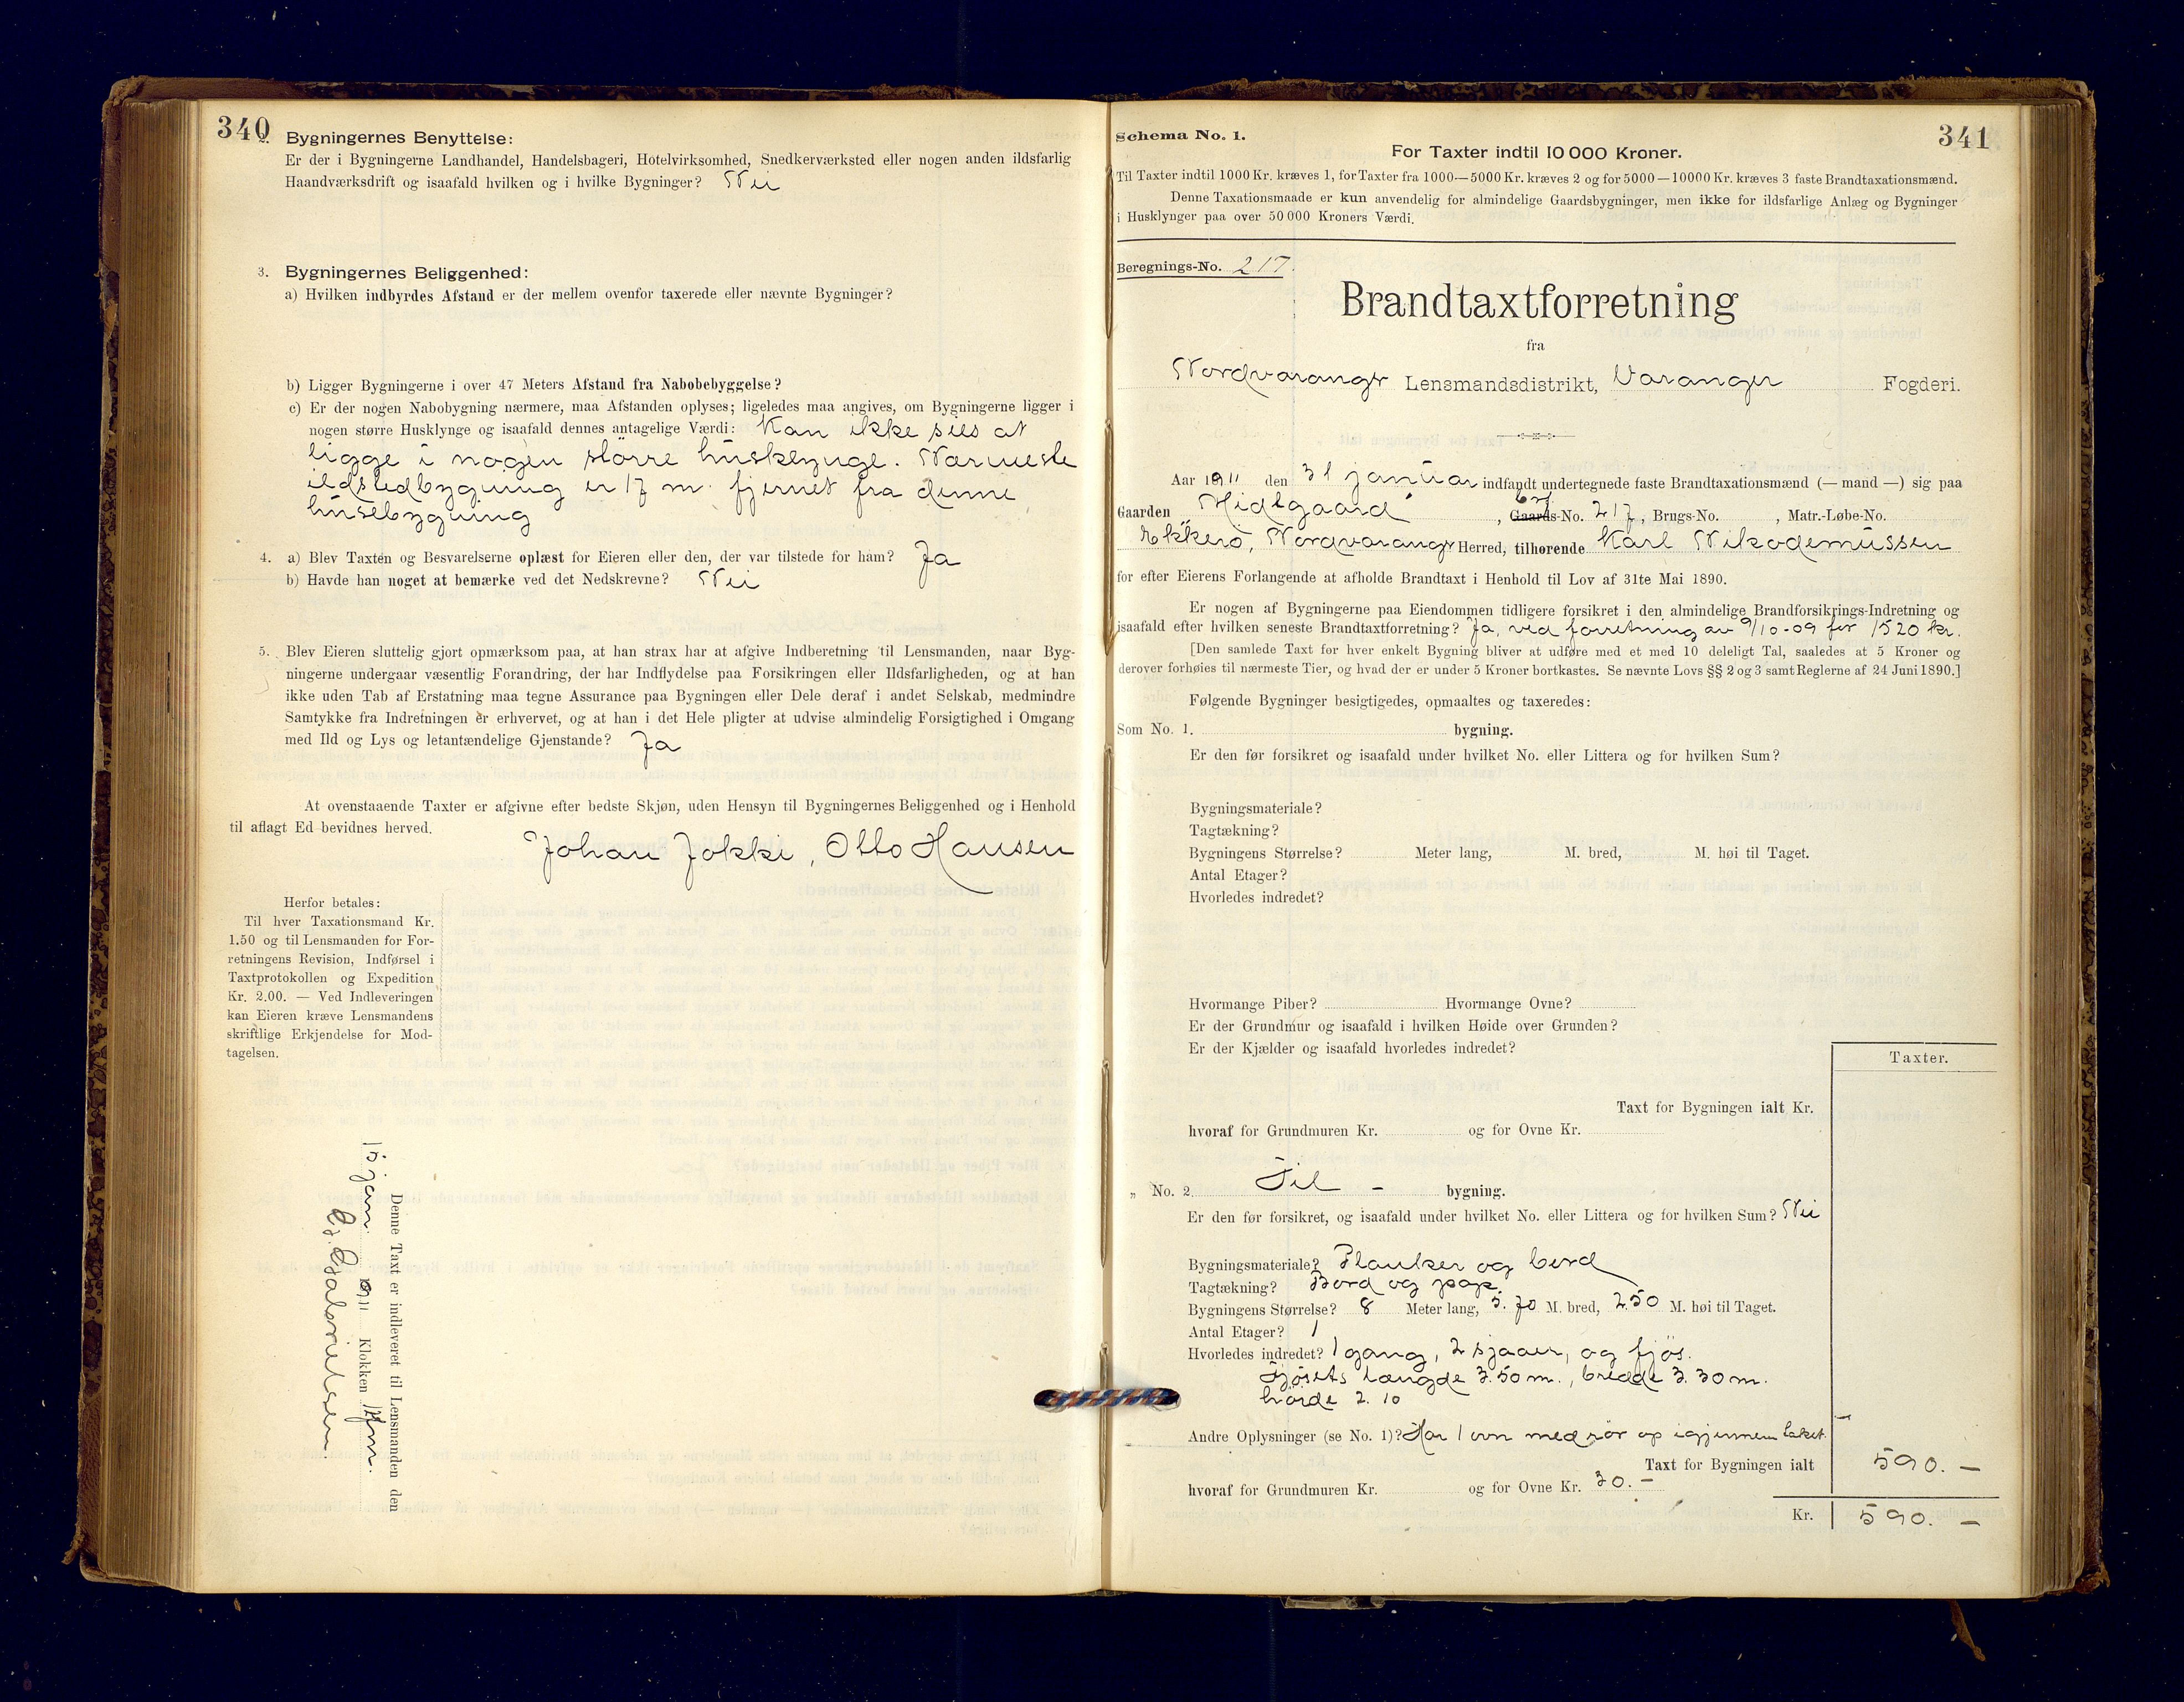 340
2. Bygningernes Benyttelse:
Er der i Bygningerne Landhandel, Handelsbageri, Hotelvirksomhed, Snedkerværksted eller nogen anden ildsfarlig
Haandværksdrift og isaafald hvilken og i hvilke Bygninger? Nei
3. Bygningernes Beliggenhed:
a) Hvilken indbyrdes Afstand er der mellem ovenfor taxerede eller nævnte Bygninger?
b) Ligger Bygningerne i over 47 Meters Afstand fra Nabobebyggelse?
c) Er der nogen Nabobygning nærmere, maa Afstanden oplyses; ligeledes maa angives, om Bygningerne ligger i
nogen større Husklynge og isaafald dennes antagelige Værdi: Kan ikke sies at
ligge i nogen større husklynge. Nærmeste
ildstedbygning er 17 m. fjernet fra denne
husebygning
4. a) Blev Taxten og Besvarelserne oplæst for Eieren eller den, der var tilstede for ham? Ja
b) Havde han noget at bemærke ved det Nedskrevne? Nei
5. Blev Eieren sluttelig gjort opmærksom paa, at han strax har at afgive Indberetning til Lensmanden, naar Byg-
ningerne undergaar væsentlig Forandring, der har Indflydelse paa Forsikringen eller Ildsfarligheden, og at han
ikke uden Tab af Erstatning maa tegne Assurance paa Bygningen eller Dele deraf i andet Selskab, medmindre
Samtykke fra Indretningen er erhvervet, og at han i det Hele pligter at udvise almindelig Forsigtighed i Omgang
med Ild og Lys og letantændelige Gjenstande? Ja
At ovenstaaende Taxter er afgivne efter bedste Skjøn, uden Hensyn til Bygningernes Beliggenhed og i Henhold
til aflagt Ed bevidnes herved.
Johan Jokki, Otto Hansen
Herfor betales:
Til hver Taxationsmand Kr.
1.50 og til Lensmanden for For-
retningens Revision, Indførsel i
Taxtprotokollen og Expedition
Kr. 2.00. — Ved Indleveringen
kan Eieren kræve Lensmandens
skriftlige Erkjendelse for Mod-
tagelsen.
Denne Taxt er indleveret til Lensmanden den
15 jan. 1911 Klokken 12 fm.
Gabrielsen
341
Schema No. 1.
For Taxter indtil 10 000 Kroner.
Til Taxter indtil 1000 Kr. kræves 1, for Taxter fra 1000—5000 Kr. kræves 2 og for 5000—10000 Kr. kræves 3 faste Brandtaxationsmænd.
Denne Taxationsmaade er kun anvendelig for almindelige Gaardsbygninger, men ikke for ildsfarlige Anlæg og Bygninger
i Husklynger paa over 50 000 Kroners Værdi.
Beregnings-No. 217.
Brandtaxtforretning
fra
Nordvaranger Lensmandsdistrikt, Varanger Fogderi.
Aar 1911 den 31 januar indfandt undertegnede faste Brandtaxationsmænd (— mand —) sig paa
Gaarden Midtgaard, Gaards-No. 217, Brugs-No. , Matr.-Løbe-No.
Ekkerø, Nordvaranger Herred, tilhørende Karl Nikodemussen
for efter Eierens Forlangende at afholde Brandtaxt i Henhold til Lov af 31te Mai 1890.
Er nogen af Bygningerne paa Eiendommen tidligere forsikret i den almindelige Brandforsikrings-Indretning og
isaafald efter hvilken seneste Brandtaxtforretning? Ja, ved forretning av 9/10-09 for 1520 kr.
[Den samlede Taxt for hver enkelt Bygning bliver at udføre med et med 10 deleligt Tal, saaledes at 5 Kroner og
derover forhøies til nærmeste Tier, og hvad der er under 5 Kroner bortkastes. Se nævnte Lovs §§ 2 og 3 samt Reglerne af 24 Juni 1890.]
Følgende Bygninger besigtigedes, opmaaltes og taxeredes:
Som No. 1. bygning.
Er den før forsikret og isaafald under hvilket No. eller Littera og for hvilken Sum?
Bygningsmateriale?
Tagtækning?
Bygningens Størrelse? Meter lang, M. bred, M. høi til Taget.
Antal Etager?
Hvorledes indredet?
Hvormange Piber? Hvormange Ovne?
Er der Grundmur og isaafald i hvilken Høide over Grunden?
Er der Kjælder og isaafald hvorledes indredet?
Taxter.
Taxt for Bygningen ialt Kr.
hvoraf for Grundmuren Kr. og for Ovne Kr.
„ No. 2. Til - bygning.
Er den før forsikret, og isaafald under hvilket No. eller Littera og for hvilken Sum? Nei
Bygningsmateriale? Planker og bord
Tagtækning? Bord og pap.
Bygningens Størrelse? 8 Meter lang, 5.70 M. bred, 2.50 M. høi til Taget.
Antal Etager? 1
Hvorledes indredet? 1 gang, 2 sjaaer, og fjøs.
Fjøsets længde 3.50 m., bredde 3.30 m.
høide 2.10
Andre Oplysninger (se No. 1)? Har 1 ovn med rør op igjennem taket.
Taxt for Bygningen ialt 590. —
hvoraf for Grundmuren Kr. og for Ovne Kr. 30. —
Kr. 590. —